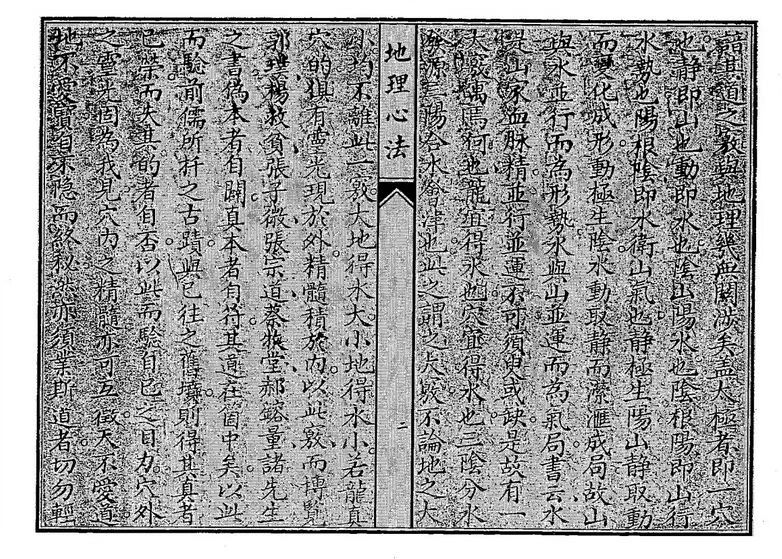 藉其道之教與地理幾無關涉矣蓋太極者即一穴
也靜即山也動即水也陰山陽水也陰根陽即山行
水勢也陽根陰即水衛山氣也靜極生陽山靜取動
而變化成形動極生陰水動取靜而瀠滙成局故山
與水並行而為形勢水與山並運而為氣局書云水
是山家血脉精並行並運不可須臾或缺是故有一
大竅焉陽行也龍宜得水也穴宜得水也三陰分水
源三陽合水會津也此之謂之大竅不論地之大
地理心法
二
小均不離此一竅大地得水大小地得水小若龍真
穴的猶有靈光現於外精髓積於內以此竅而博覽
郭璞楊救貧張子微張宗道蔡牧堂郝鎔量諸先生
之書偽本者自闢真本者自符其道在箇中矣以此
而驗前儒所扦之古蹟與已往之舊墳則得其真者
已榮而失其的者自否以此而驗自已之目力穴外
之靈光固為我見穴內之精髓亦可互徵天不愛道
地不愛寶自不隱而終秘然亦須業斯道者切勿輕